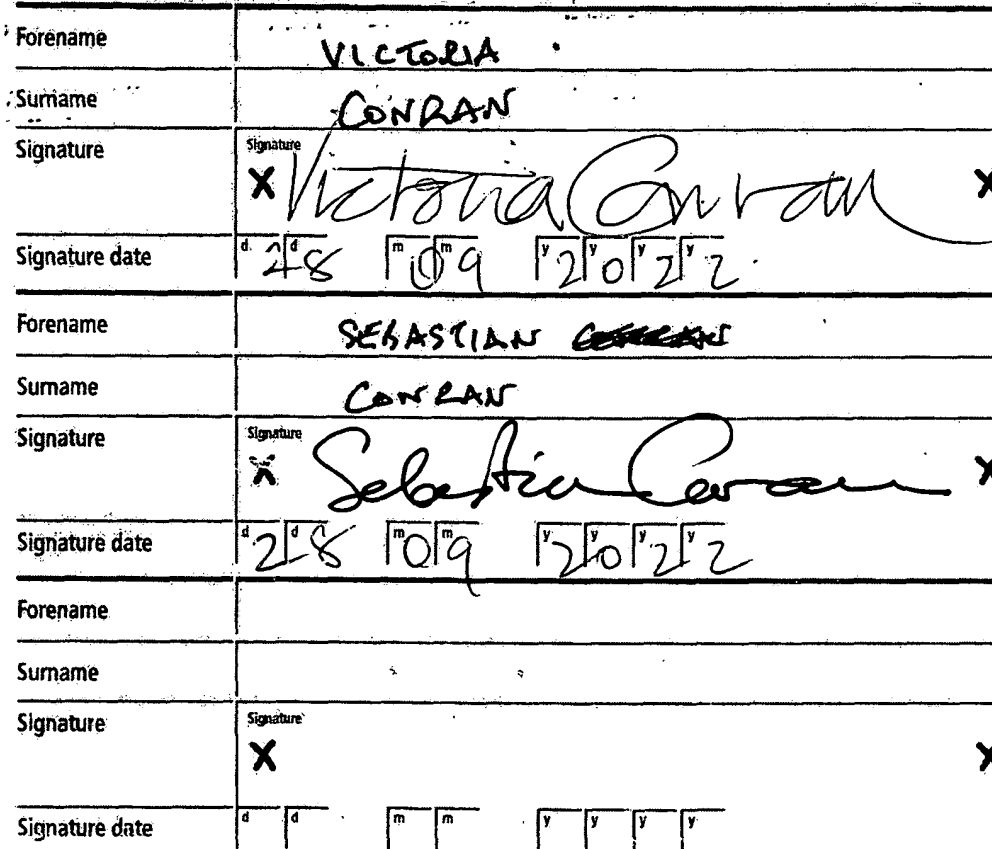 Forename VICTORIA
Surname CONRAN
Signature Signature
X Victoria Conran X
Signature date d 2 d 8 m 0 m 9 y 2 y 0 y 2 y 2
Forename SEBASTIAN
Surname CONRAN
Signature Signature
X Sebastian Conran X
Signature date d 2 d 8 m 0 m 9 y 2 y 0 y 2 y 2
Forename
Surname
Signature Signature
X X
Signature date d d m m y y y y